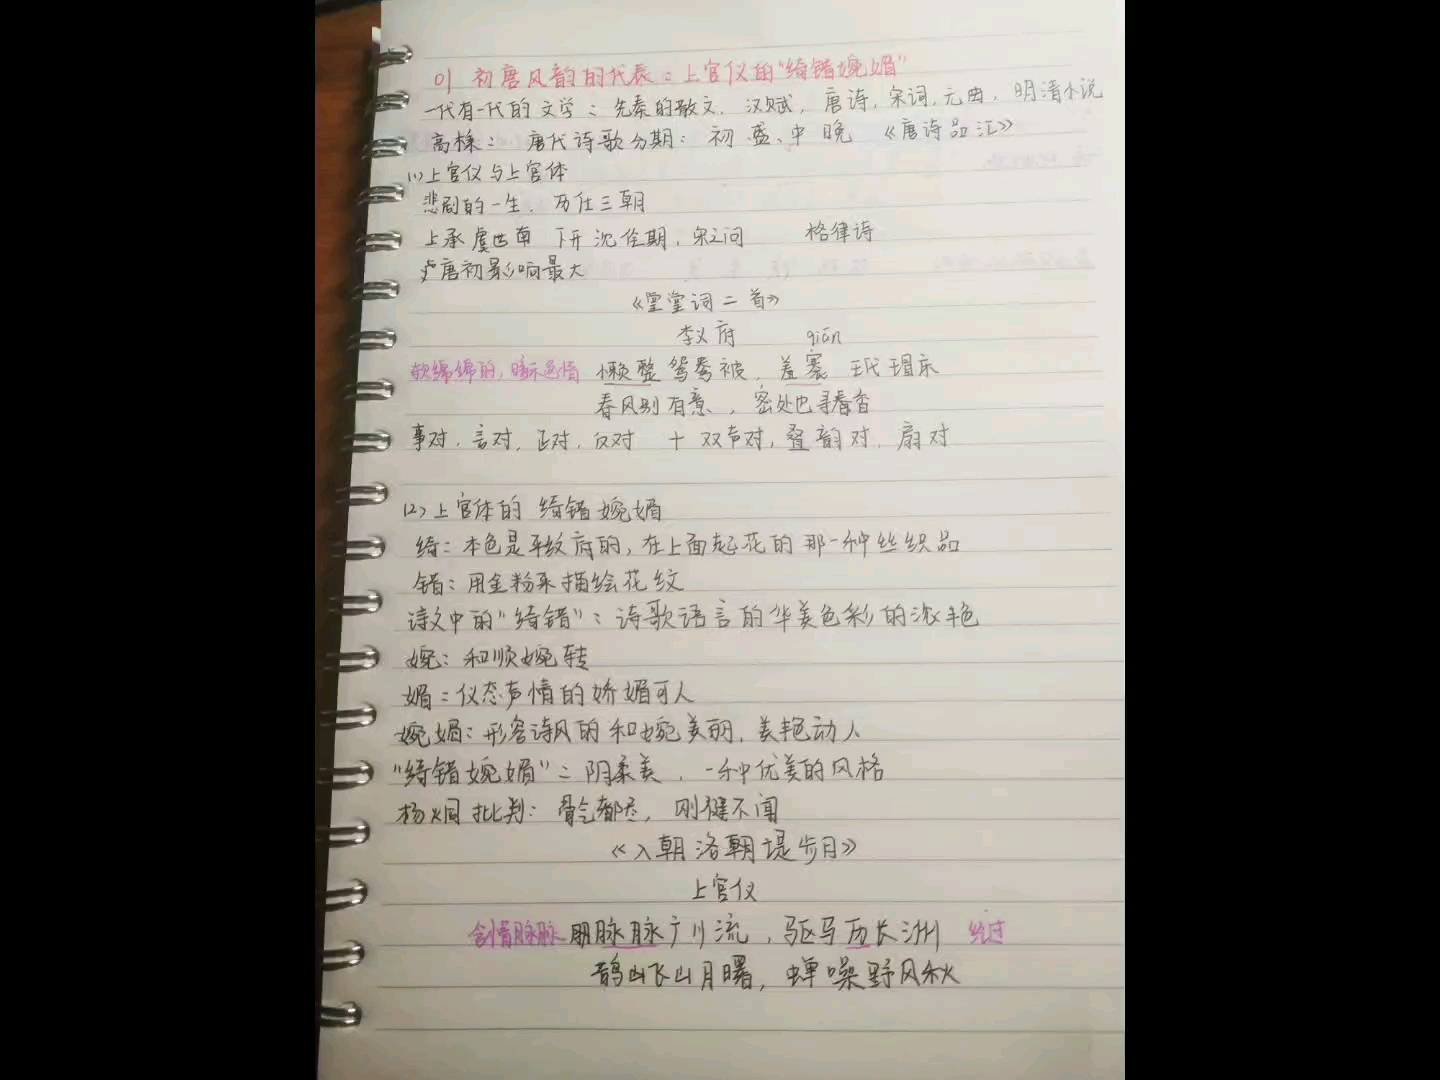 01 初唐风韵的代表：上官仪的"绮错婉媚"
一代有一代的文学：先秦的散文，汉赋，唐诗，宋词，元曲，明清小说
高棅：唐代诗歌分期：初、盛、中、晚 《唐诗品汇》
(1)上官仪与上官体
悲剧的一生，历仕三朝
上承虞世南 下开沈佺期，宋之问 格律诗
唐初影响最大
《堂堂词二首》
李义府 qiān
软绵绵的，暗示色情 懒整鸳鸯被，羞褰玳瑁床
春风别有意，密处也寻香
事对，言对，正对，反对 十 双声对，叠韵对，扇对
(2)上官体的 绮错婉媚
绮：本色是平纹底的，在上面起花的那一种丝织品
错：用金粉来描绘花纹
诗文中的"绮错"：诗歌语言的华美色彩的浓艳
婉：和顺婉转
媚：仪态声情的娇媚可人
婉媚：形容诗风的和婉美丽，美艳动人
"绮错婉媚"：阴柔美，一种优美的风格
杨炯批判：骨气都尽，刚健不闻
《入朝洛堤步月》
上官仪
含情脉脉 脉脉广川流，驱马历长洲 经过
鹊飞山月曙，蝉噪野风秋